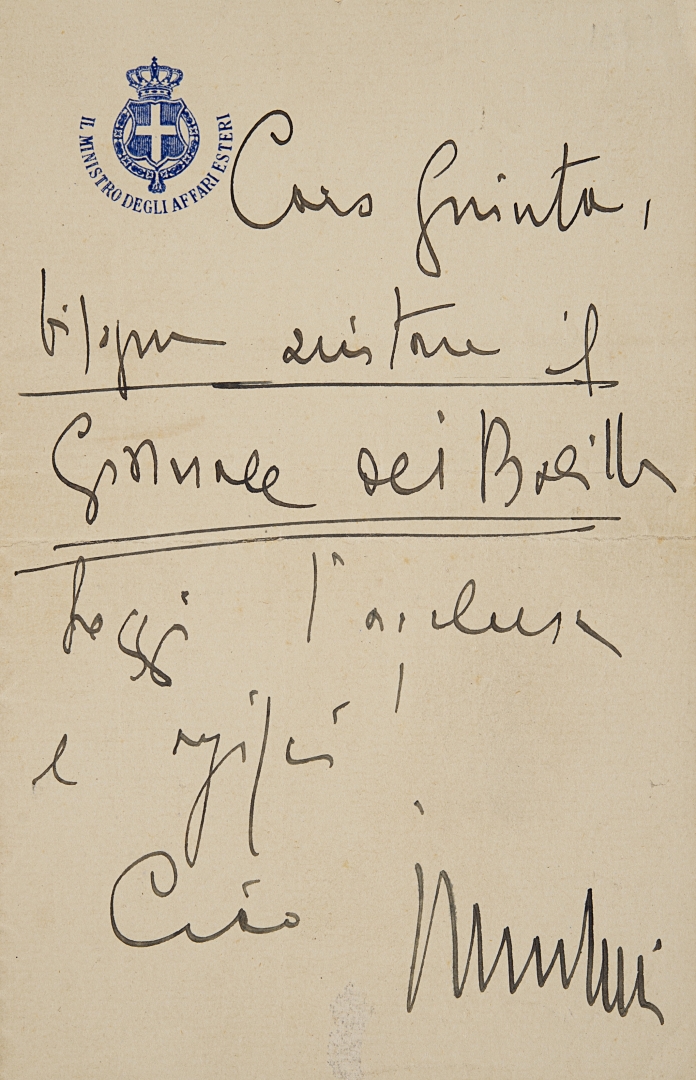 IL MINISTRO DEGLI AFFARI ESTERI
Caro Giunta,
bisogna aiutare il
Giornale dei Balilla
Leggi l'acclusa
e agisci!
Ciao Mussolini